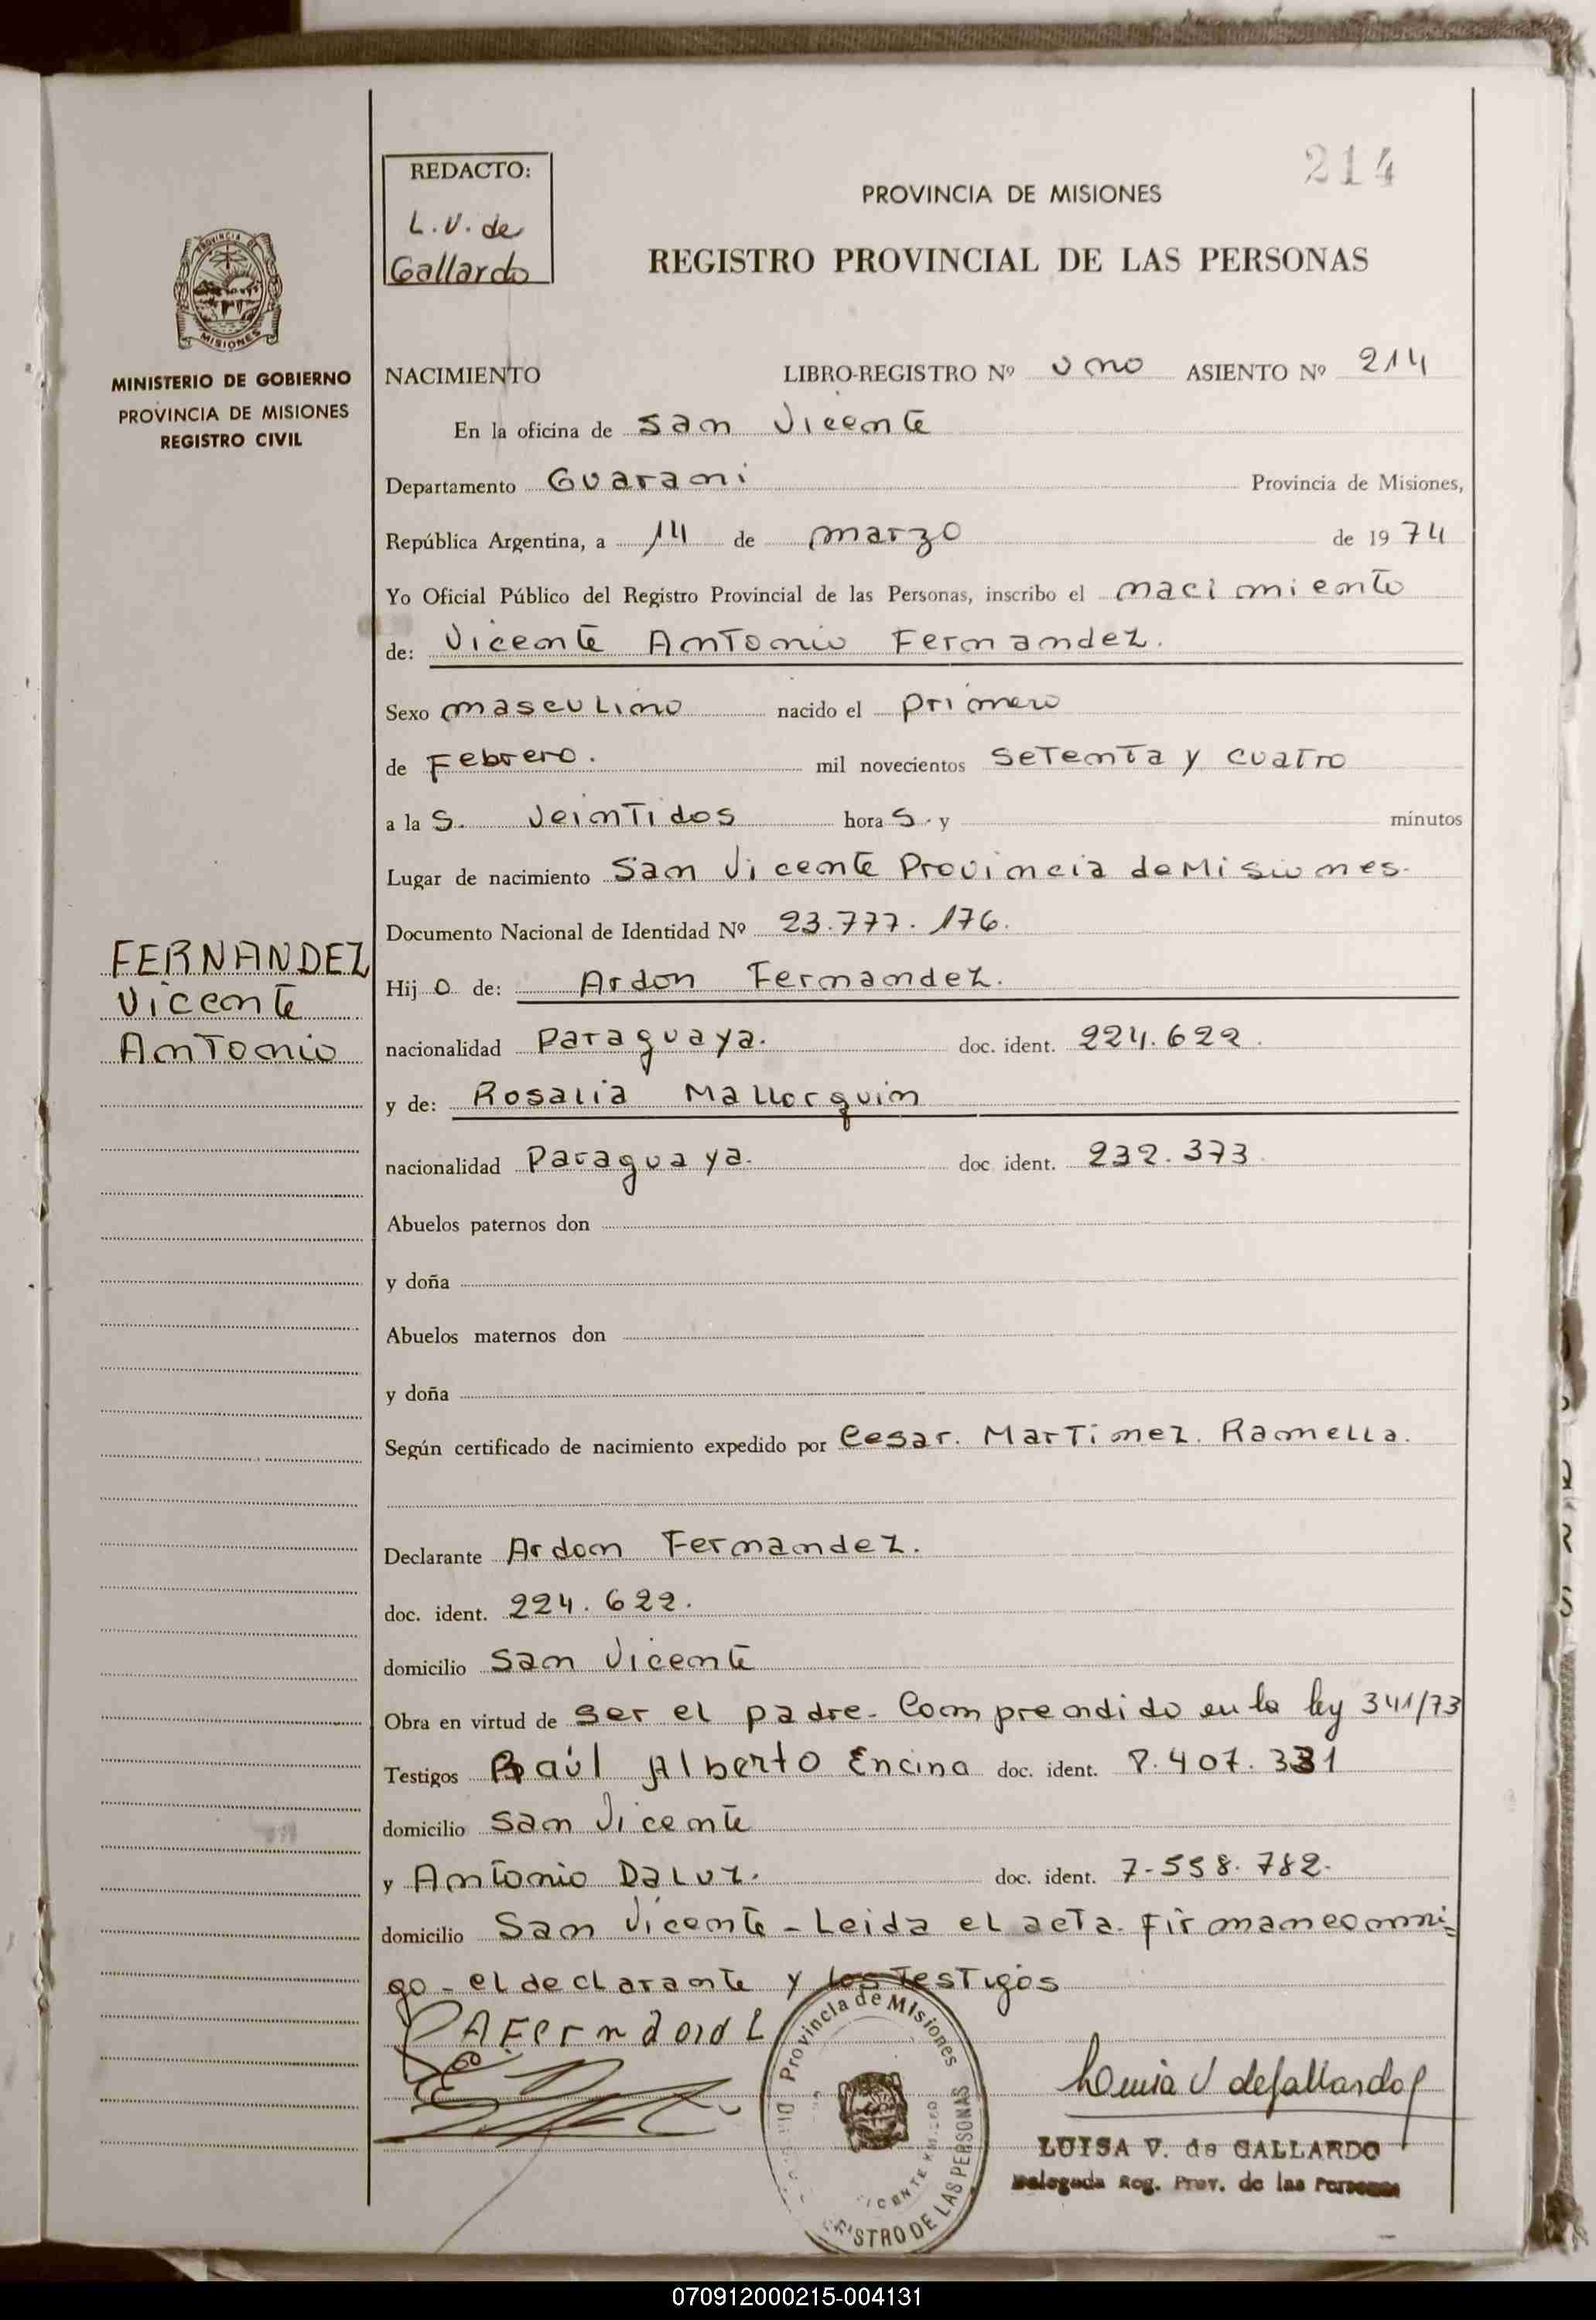 214
REDACTO:
L. V. de
Gallardo
PROVINCIA DE MISIONES
REGISTRO PROVINCIAL DE LAS PERSONAS
PROVINCIA DE
MISIONES
MINISTERIO DE GOBIERNO
PROVINCIA DE MISIONES
REGISTRO CIVIL
NACIMIENTO LIBRO-REGISTRO Nº uno ASIENTO Nº 214
En la oficina de San Vicente
Departamento Guarani Provincia de Misiones,
República Argentina, a 14 de marzo de 1974
Yo Oficial Público del Registro Provincial de las Personas, inscribo el nacimiento
de: Vicente Antonio Fernandez.
Sexo masculino nacido el primero
de Febrero. mil novecientos setenta y cuatro
a las. veintidos horas. y minutos
Lugar de nacimiento San Vicente Provincia de Misiones.
Documento Nacional de Identidad Nº 23.777.176.
FERNANDEZ
Vicente
Antonio
Hijo de: Ardon Fernandez.
nacionalidad Paraguaya. doc. ident. 224.622.
y de: Rosalia Mallorquin
nacionalidad Paraguaya. doc. ident. 232.373.
Abuelos paternos don
y doña
Abuelos maternos don
y doña
Según certificado de nacimiento expedido por Cesar. Martinez. Ramella.
Declarante Ardon Fernandez.
doc. ident. 224.622.
domicilio San Vicente
Obra en virtud de ser el padre. Comprendido en la ley 341/73
Testigos Raúl Alberto Encina doc. ident. 8.407.331
domicilio San Vicente
y Antonio Daluz. doc. ident. 7-558.782.
domicilio San Vicente - Leida el acta. firman conmi=
go - el declarante y los testigos
Provincia de Misiones
REGISTRO DE LAS PERSONAS
Luisa V de Gallardo
LUISA V. de GALLARDO
Delegada Reg. Prov. de las Personas
070912000215-004131